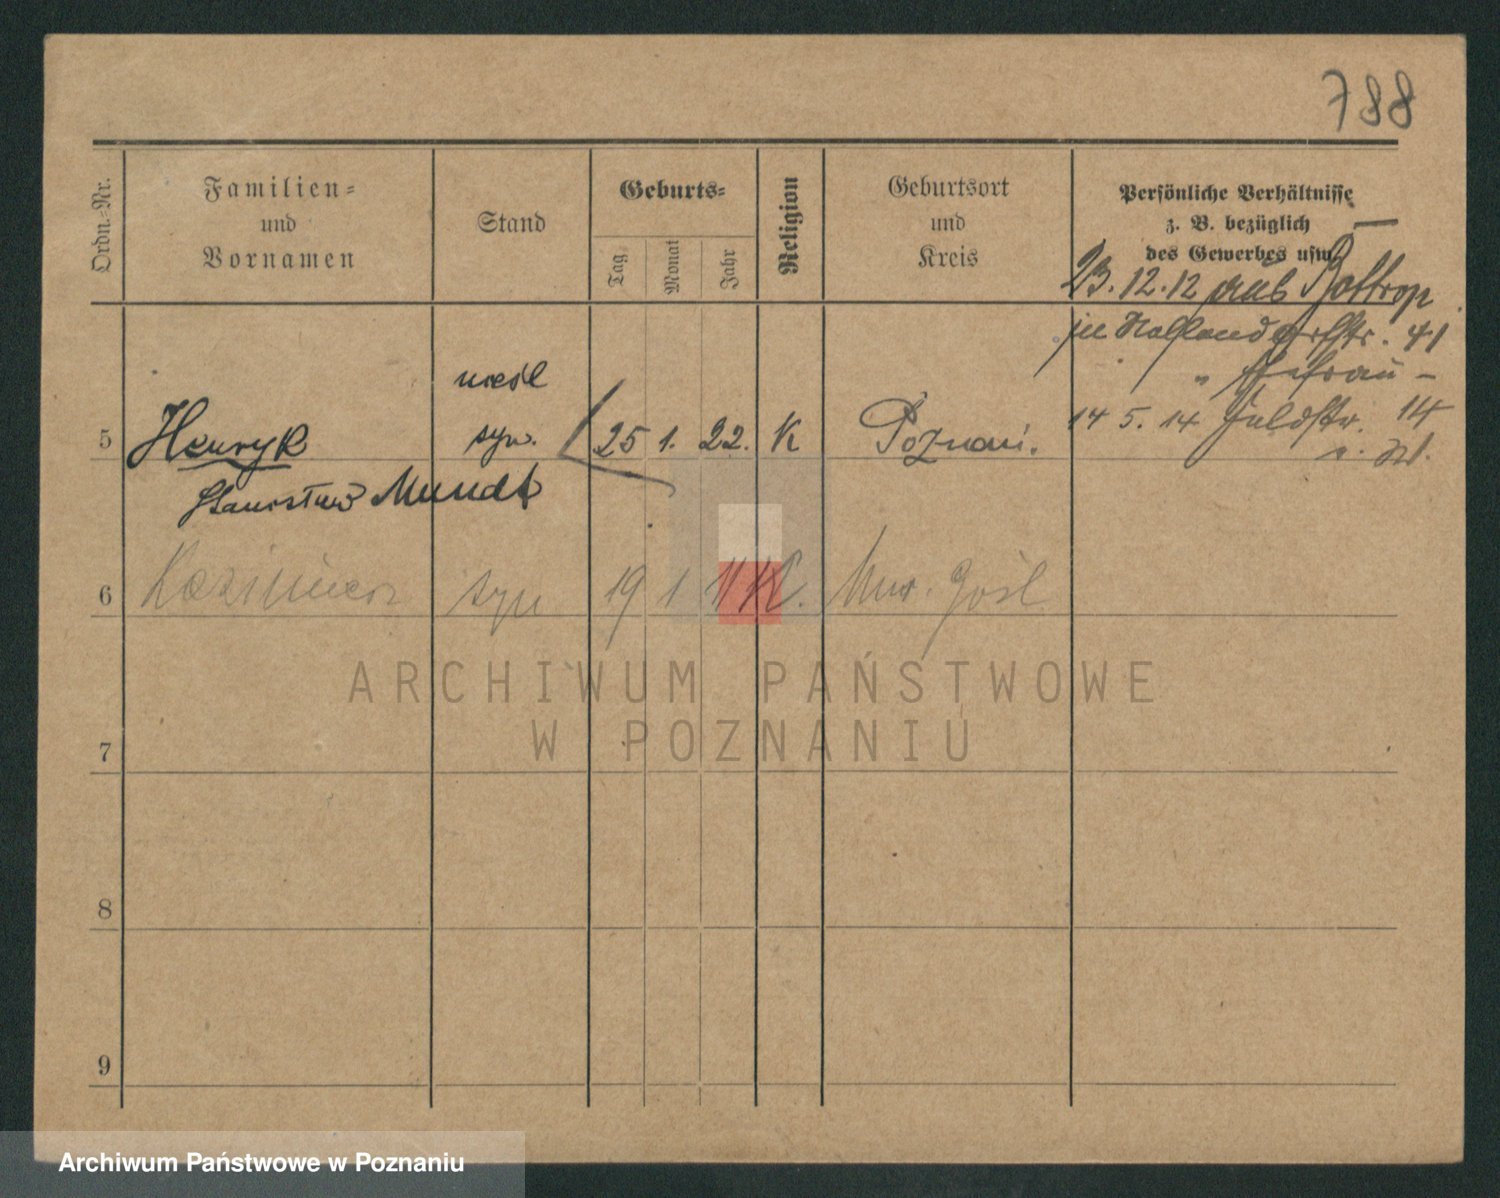 788
Ordn.-Nr.
Familien-
und
Vornamen
Stand
Geburts-
Tag
Monat
Jahr
Religion
Geburtsort
und
Kreis
Persönliche Verhältnisse
z. B. bezüglich
des Gewerbes usw.
23.12.12 aus Bottrop
14 5. 14 Feldstr. 14
5 Henryk syn. 25 1. 22. K Poznań.
Stanisław Mundt
6 Kazimierz syn 19 1 11 K.
7
8
9
ARCHIWUM PAŃSTWOWE
W POZNANIU
Archiwum Państwowe w Poznaniu